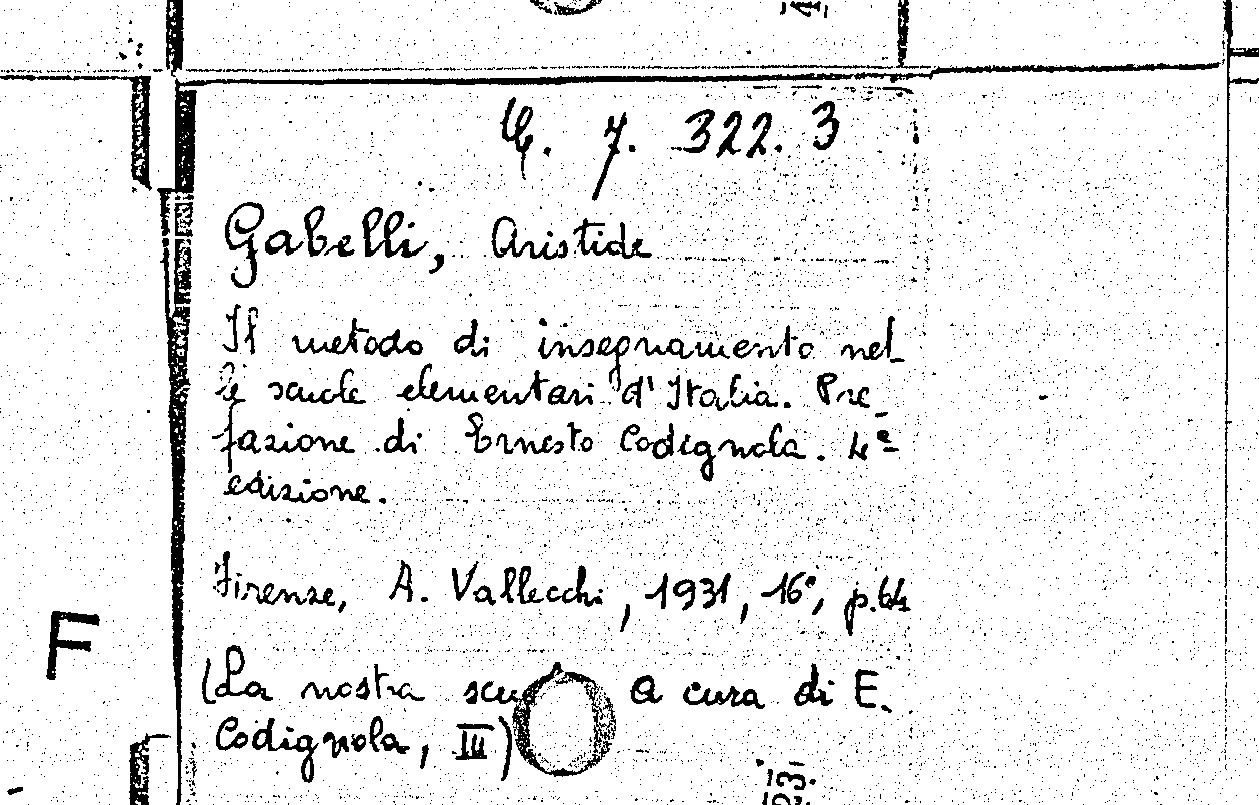 7. 322. 3
Gabelli, Aristide
Il metodo di insegnamento nel-
le scuole elementari d'Italia. Pre-
fazione di Ernesto Codignola. 4ª
edizione.
Firenze, A. Vallecchi, 1931, 16°, p.64
(La nostra a cura di E.
Codignola, III)
F